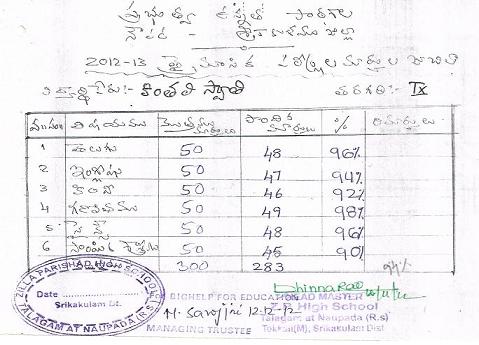 ప్రభుత్వ ఉన్నత పాఠశాల
నౌపడ - శ్రీకాకుళము జిల్లా
2012-13 త్రైమాసిక పరీక్షల మార్కుల జాబితా
విద్యార్థి పేరు:- కింతలి స్వాతి తరగతి:- IX
వ.సం విషయము మొత్తము మార్కులు పొందిన మార్కులు % రిమార్కులు
1 తెలుగు 50 48 96%
2 ఇంగ్లీషు 50 47 94%
3 హిందీ 50 46 92%
4 గణితము 50 49 98%
5 సైన్స్ 50 48 96%
6 సాంఘిక శాస్త్రం 50 45 90%
300 283 94%
ZILLA PARISHAD HIGH SCHOOL
Date
Srikakulam Dt.
TALAGAM AT NAUPADA (R.S)
BIGHELP FOR EDUCATION
M. Sarojini 12-12-12
MANAGING TRUSTEE
HEAD MASTER
Z.P. High School
Talagam at Naupada (R.s)
Tekkali(M), Srikakulam Dist